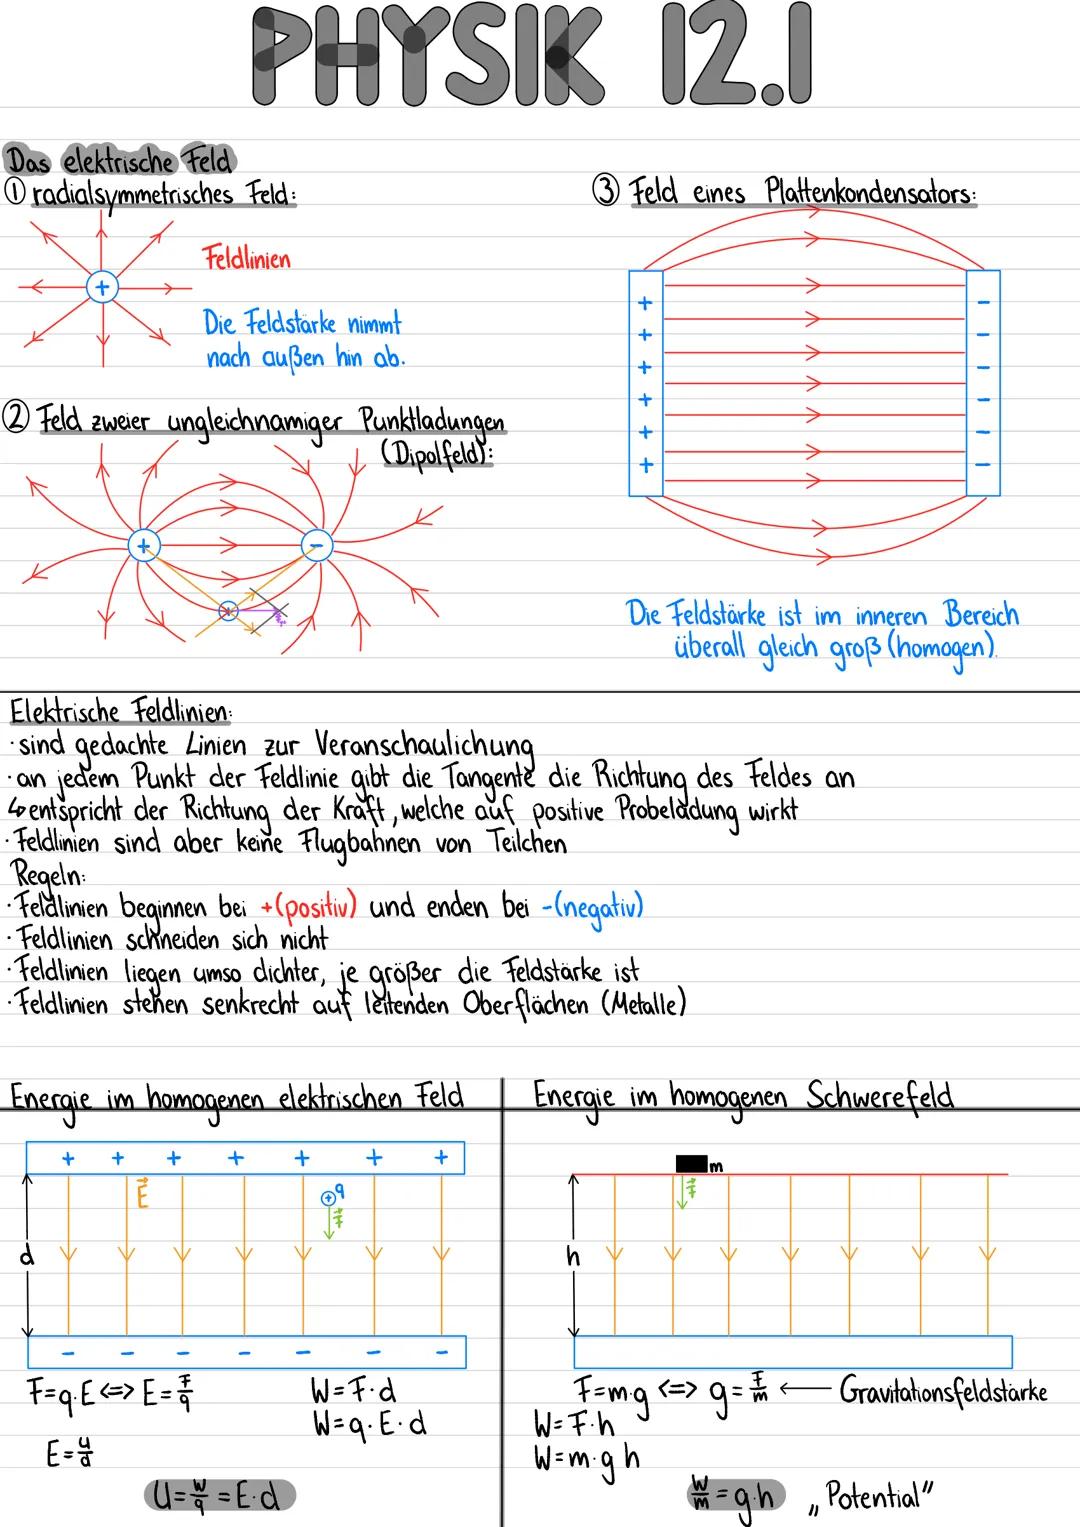 PHYSIK 12.1
Das elektrische Feld
① radialsymmetrisches Feld:
Feldlinien
+
Die Feldstärke nimmt
nach außen hin ab.
② Feld zweier ungleichnamiger Punktladungen
(Dipolfeld):
+ -
+
③ Feld eines Plattenkondensators:
+ -
+ -
+ -
+ -
+ -
+ -
Die Feldstärke ist im inneren Bereich
überall gleich groß (homogen).
Elektrische Feldlinien:
· sind gedachte Linien zur Veranschaulichung
· an jedem Punkt der Feldlinie gibt die Tangente die Richtung des Feldes an
↳ entspricht der Richtung der Kraft, welche auf positive Probeladung wirkt
· Feldlinien sind aber keine Flugbahnen von Teilchen
Regeln:
· Feldlinien beginnen bei +(positiv) und enden bei -(negativ)
· Feldlinien schneiden sich nicht
· Feldlinien liegen umso dichter, je größer die Feldstärke ist
· Feldlinien stehen senkrecht auf leitenden Oberflächen (Metalle)
Energie im homogenen elektrischen Feld
+ + + + + + +
E⃗
q
+
F⃗
d
- - - - - - -
F=q·E <=> E=F/q
W=F·d
W=q·E·d
E=U/d
U=W/q=E·d
Energie im homogenen Schwerefeld
m
F⃗
h
F=m·g <=> g=F/m ← Gravitationsfeldstärke
W=F·h
W=m·g·h
W/m=g·h „Potential"